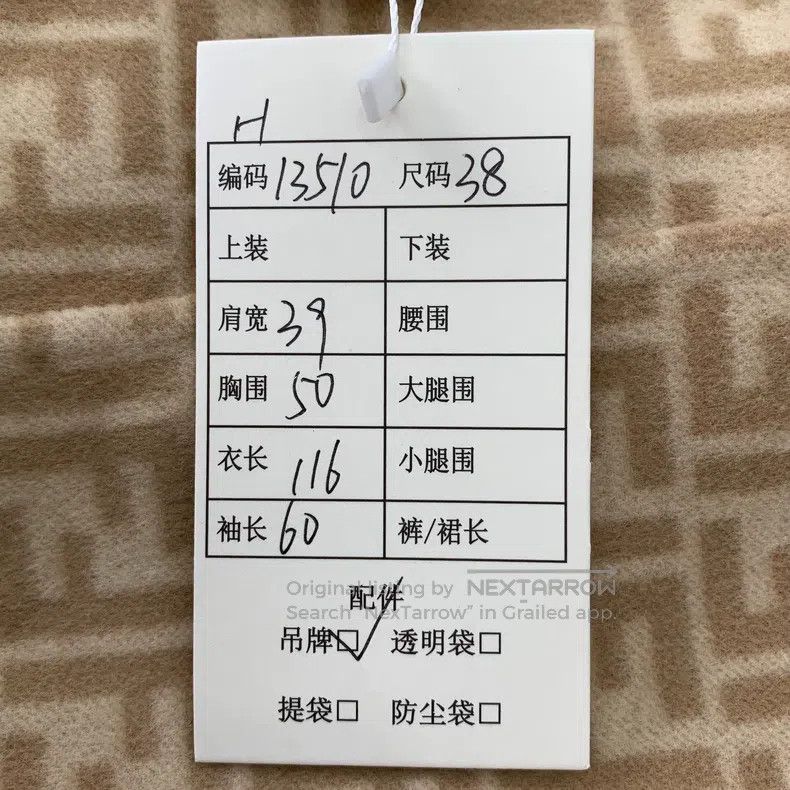 H
编码 13510 尺码 38
上装 下装
肩宽 39 腰围
胸围 50 大腿围
衣长 116 小腿围
袖长 60 裤/裙长
配件
Original listing by NEXTARROW
Search "NexTarrow" in Grailed app.
吊牌☑ 透明袋□
提袋□ 防尘袋□